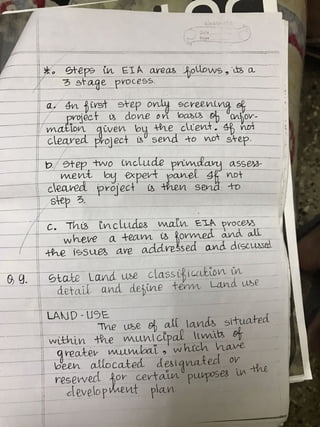 *. Steps in EIA areas follows, its a
3 stage process.
a. In first step only screening of
project is done on basis of infor-
mation given by the client. If not
cleared project is send to not step.
b. Step two include primdary assess-
ment by expert panel If not
cleared project is then send to
step 3.
c. This includes main EIA process
where a team is formed and all
the issues are addressed and discussed
Q9. State Land use classification in
detail and define term Land use
LAND-USE
The use of all lands situated
within the municipal limits of
greater mumbai, which have
been allocated designated or
reserved for certain purposes in the
development plan